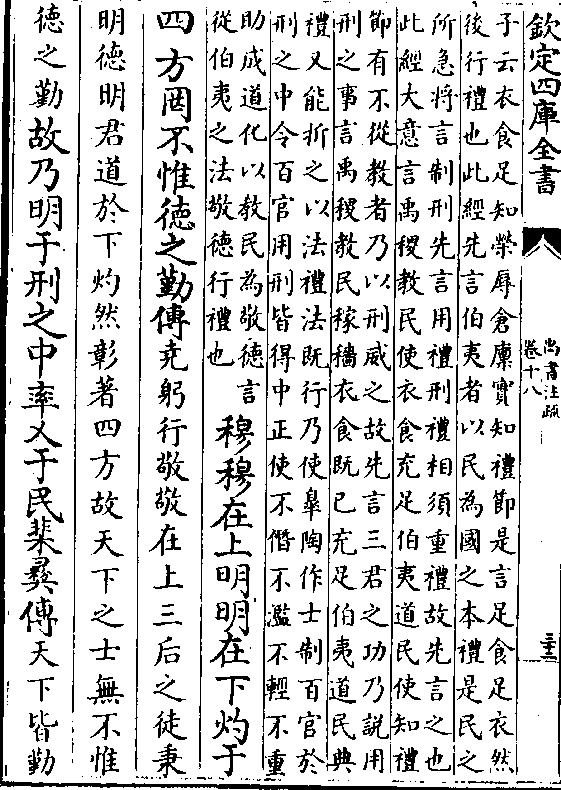 欽定四庫全書
尚書注疏
卷十八
子云衣食足知榮辱倉廩實知禮節是言足食足衣然
後行禮也此經先言伯夷者以民為國之本禮是民之
所急將言制刑先言用禮刑禮相須重禮故先言之也
此經大意言禹稷教民使衣食充足伯夷道民使知禮
節有不從教者乃以刑威之故先言三君之功乃說用
刑之事言禹稷教民稼穡衣食既已充足伯夷道民典
禮又能折之以法禮法既行乃使臯陶作士制百官於
刑之中令百官用刑皆得中正使不僭不濫不輕不重
助成道化以教民為敬德言
從伯夷之法敬德行禮也
穆穆在上明明在下灼于
四方罔不惟德之勤傳堯躬行敬敬在上三后之徒秉
明德明君道於下灼然彰著四方故天下之士無不惟
德之勤故乃明于刑之中率乂于民棐彝傳天下皆勤